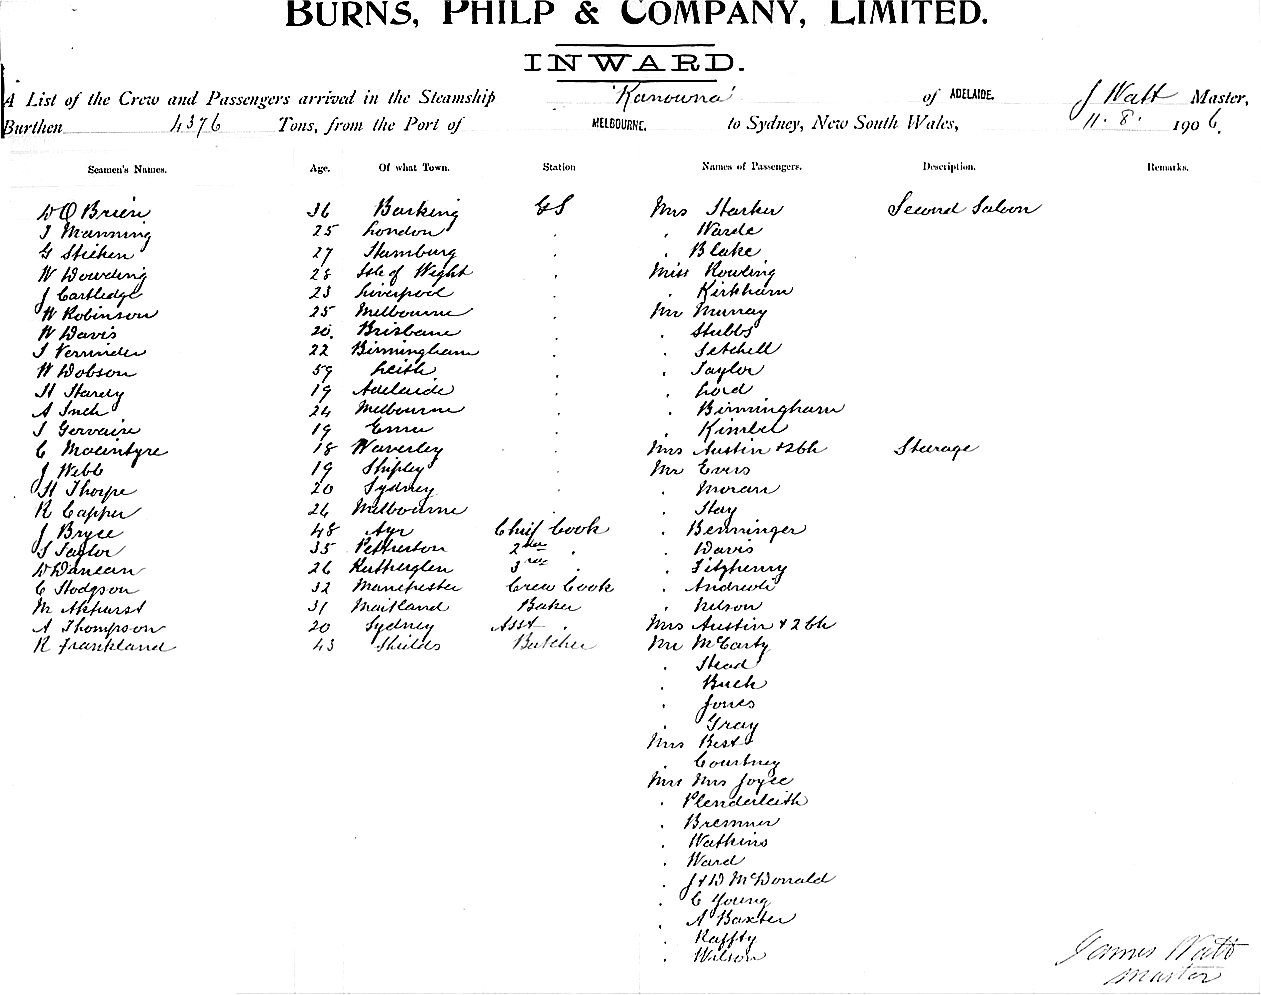 BURNS, PHILP & COMPANY, LIMITED.
INWARD.
A List of the Crew and Passengers arrived in the Steamship 'Kanowna' of ADELAIDE. J Watt Master,
Burthen 4376 Tons, from the Port of MELBOURNE. to Sydney, New South Wales, 11. 8. 1906.
Seamen's Names. Age. Of what Town. Station Names of Passengers. Description. Remarks.
D O Brien 36 Barking GS Mrs Starker Second Saloon
J Manning 25 London . . Warde
G 27 Hamburg . . Blake
W Dowding 28 Isle of Wight . Miss Rowling
J Cartledge 23 Liverpool . . Kirkham
W Robinson 25 Melbourne . Mr Murray
W Davis 20. Brisbane . . Stubbs
22 Birmingham . . Setchell
W Dobson 59 Leith . . Taylor
H Hardy 19 Adelaide . . Lord
A Inch 24 Melbourne . . Birmingham
J Gervaise 19 . . Kimber
C McIntyre 18 Waverley . Mrs Austin + 2 ch Steerage
J Webb 19 Shipley . Mr Evers
H Thorpe 20 Sydney . . Moran
R Capper 26 Melbourne . . Hay
J Bryce 48 Ayr Chief Cook . Benninger
S Taylor 35 Petherton 2nd . . Davis
D Duncan 26 Rutherglen 3rd . Fitzhenry
C Hodgson 32 Manchester Crew Cook . Andrews
M Akhurst 31 Maitland Baker . Nelson
A Thompson 20 Sydney Asst . Mrs Austin + 2 ch
R Frankland 43 Shields Butcher Mr McCarty
. Head
. Buck
. Jones
. Gray
Mrs Best
. Courtney
Mr Mrs Joyce
. Plenderleith
. Bremner
. Watkins
. Ward
. J & D McDonald
. C Young
. A Baxter
. Raffty
. Wilson
James Watt
Master